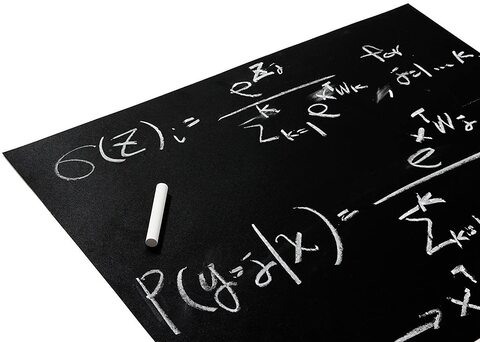 σ(z)ᵢ = e^{z_j} / Σ_{k=1}^{K} e^{x^T w_k} for , j=1...k
P(y=j|x) = e^{x^T w_j} / Σ_{k=1}^{K}
→ x^T